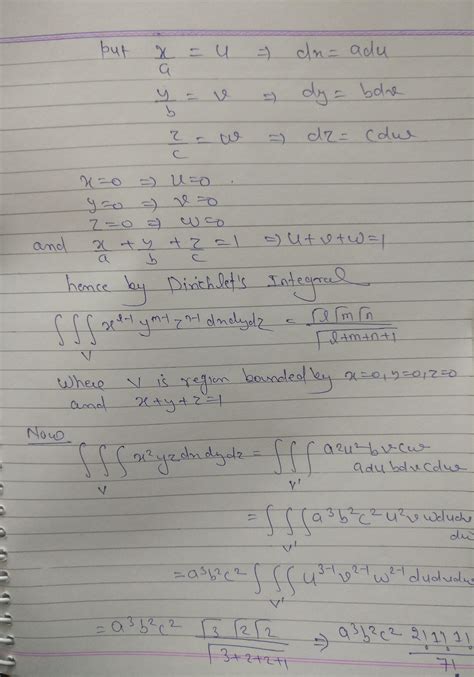 put x/a = u ⇒ dx = adu
y/b = v ⇒ dy = bdv
z/c = w ⇒ dz = cdw
x=0 ⇒ u=0.
y=0 ⇒ v=0
z=0 ⇒ w=0
and x/a + y/b + z/c = 1 ⇒ u+v+w=1
hence by Dirichlet's Integral
∫∫∫_V x^{l-1} y^{m-1} z^{n-1} dxdydz = Γl Γm Γn / Γl+m+n+1
Where V is region bounded by x=0, y=0, z=0
and x+y+z=1
Now
∫∫∫_V x²yz dxdydz = ∫∫∫_{V'} a²u² bv cw
adu bdv cdw
= ∫∫∫_{V'} a³b²c² u²v w du dv
dw
= a³b²c² ∫∫∫_{V'} u^{3-1} v^{2-1} w^{2-1} du dv dw
= a³b²c² Γ3 Γ2 Γ2 / Γ3+2+2+1 ⇒ a³b²c² 2! 1! 1! / 7!